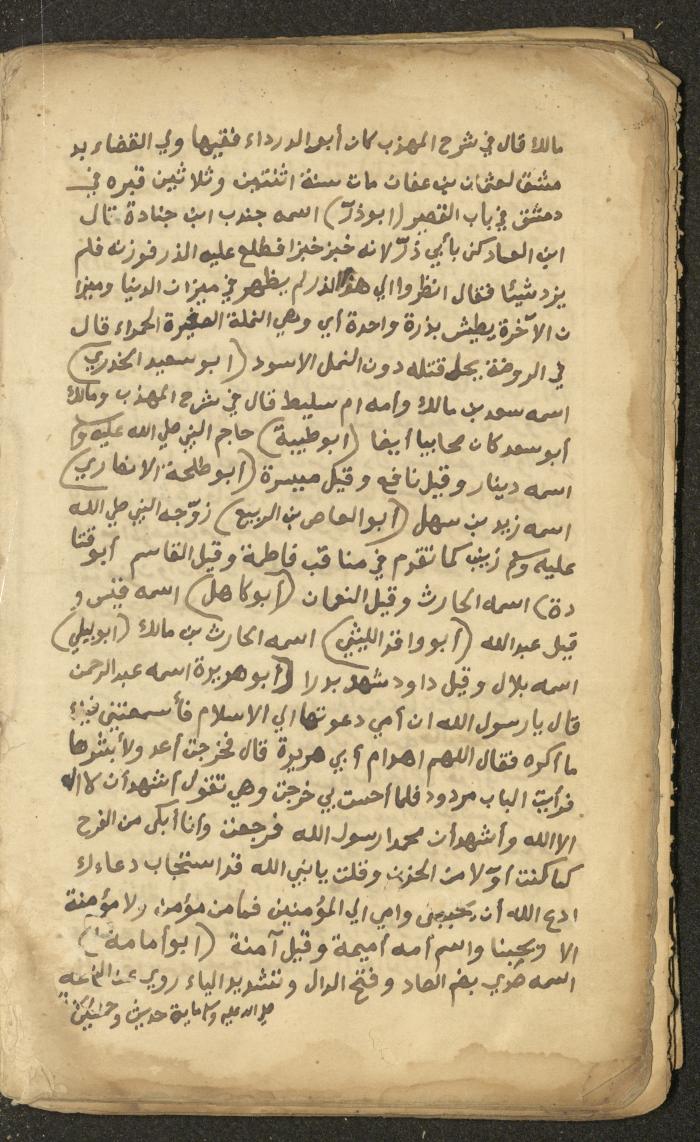 مالك قال في شرح المهذب كان أبو الدرداء فقيها ولي القضاء بد
مشق لعثمان بن عفان مات سنة اثنتين وثلاثين قبره في
دمشق في باب الصغير (ابوذرّ) اسمه جندب ابن جنادة قال
ابن العماد كني بأبي ذرّ لانه خبز خبزا فطلع عليه الذر فوزنه فلم
يزد شيئا فقال انظروا الي هذا الذر لم يظهر في ميزان الدنيا وميزا
ن الآخرة يطيش بذرة واحدة أي وهي النملة الصغيرة الحمراء قال
في الروضة يحل قتله دون النمل الاسود (ابو سعيد الخدري)
اسمه سعد بن مالك وأمه ام سليط قال في شرح المهذب ومالك
أبو سعد كان صحابيا أيضا (ابوطيبة) حاجم النبي صلي الله عليه و
اسمه دينار وقيل نافع وقيل ميسرة (أبو طلحة الانصاري)
اسمه زيد بن سهل (أبو العاص بن الربيع) زوّجه النبي صلي الله
عليه وسلم زينب كما تقدم في مناقب فاطمة وقيل القاسم أبو قتا
دة) اسمه الحارث وقيل النعمان (أبو كاهل) اسمه قيس و
قيل عبدالله (أبو واقد الليثي) اسمه الحارث بن مالك (ابو ليلي)
اسمه بلال وقيل داود شهد بدرا (أبو هريرة اسمه عبدالرحمن
قال يا رسول الله ان أمي دعوتها الي الاسلام فأسمعتني فيك
ما أكره فقال اللهم اهد ام أبي هريرة قال فخرجت أعد ولأبشرها
فرأيت الباب مردود فلما أحست بي خرجت وهي تقول أشهد أن لا اله
الا الله وأشهد أن محمدا رسول الله فرجعت وأنا أبكي من الفرح
كما كنت أوّلا من الحزن وقلت يا نبي الله قد استجاب دعاءك
ادع الله أن يحببني وامي الي المؤمنين فما من مؤمن ولا مؤمنة
الا ويحبنا واسم أمه أميمة وقيل آمنة (ابو أمامة)
اسمه صدي بضم الصاد وفتح الدال وتشديد الياء روي عن النبي
صلي الله عليه وسلم مايئة حديث وخمسين